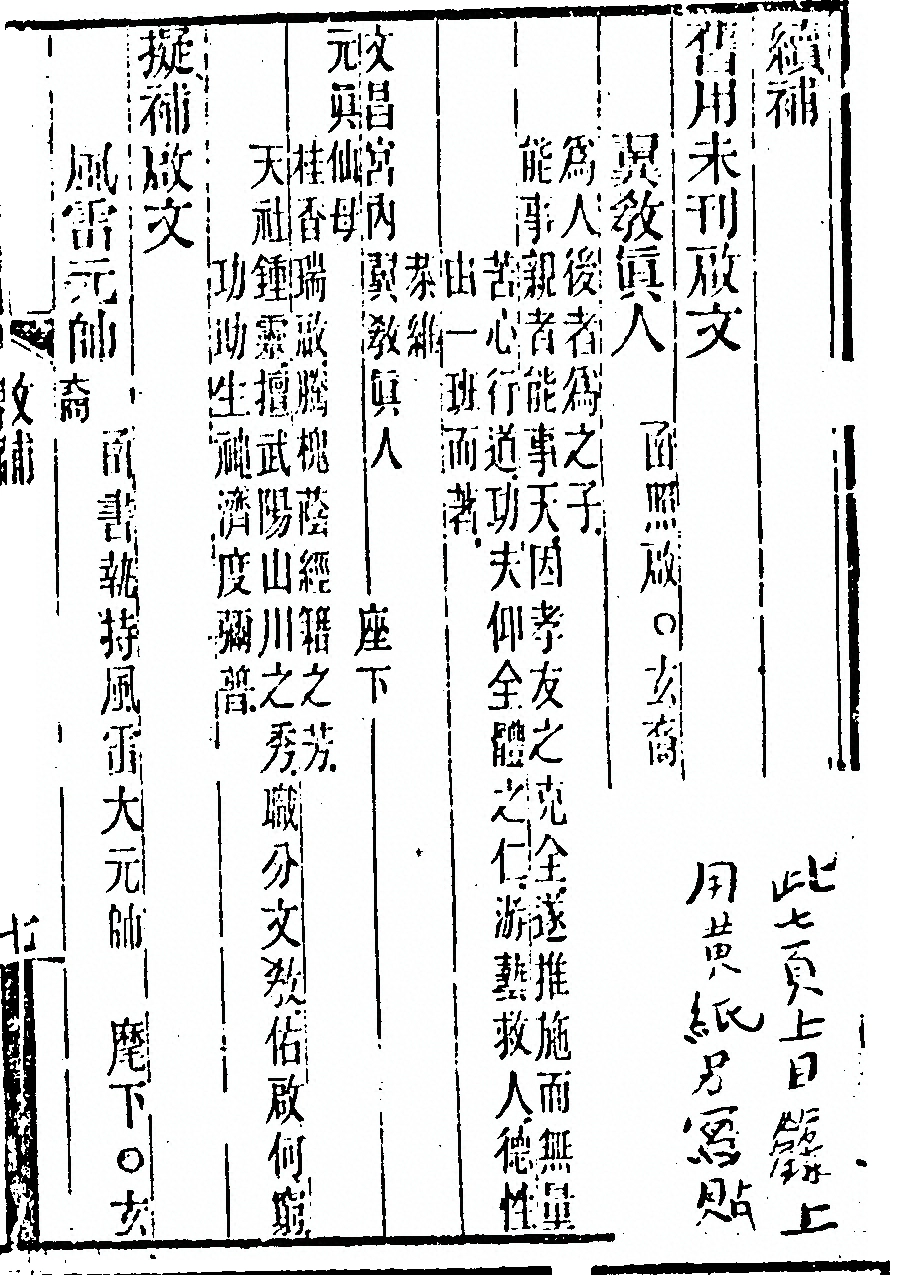 續補
舊用未刊啟文
翼教眞人 函照啟○玄裔
為人後者為之子
能事親者能事天因孝友之克全遂推施而無量
苦心行道功夫仰全體之仁游藝救人德性
由一班而著
恭維
文昌宮內翼教眞人 座下
元眞仙母
桂香瑞啟騰槐蔭經籍之芳
天社鍾靈擅武陽山川之秀職分文教佑啟何窮
功助生神濟度彌普
擬補啟文
風雷元帥 函書執持風雷大元帥 麾下○玄
裔
文補
七
此七頁上目錄上
用黄紙另寫貼